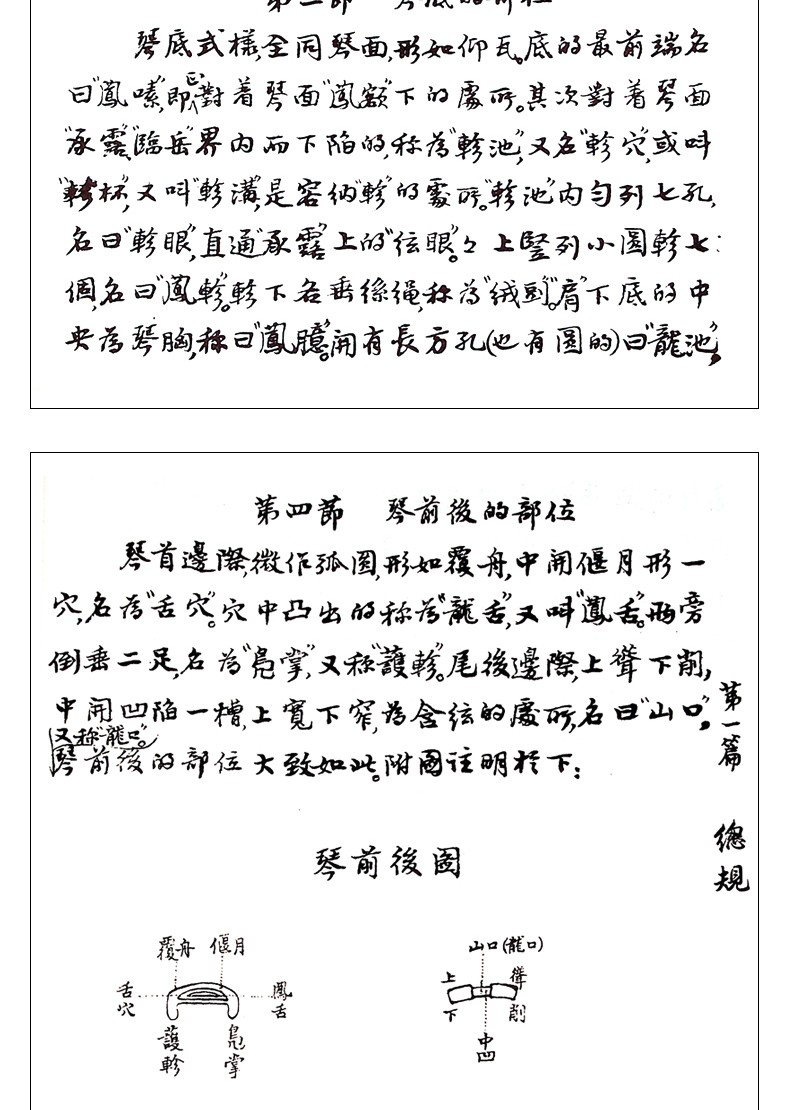 琴底式樣,全同琴面,形如仰瓦。底的最前端名
曰"鳳嗉",即正對着琴面"鳳額"下的處所。其次對着琴面
"承露""臨岳"界内而下陷的,称為"軫池",又名"軫穴",或叫
"軫杯",又叫"軫溝",是容納"軫"的處所。"軫池"内勻列七孔,
名曰"軫眼",直通"承露"上的"弦眼"。々上竪列小圓軫七
個,名曰"鳳軫"。軫下各垂絲绳,称為"絨剅"。"肩"下底的中
央為琴胸,称曰"鳳臆"。開有長方孔(也有圓的)曰"龍池",
第四節 琴前後的部位
琴首邊際,微作弧圓,形如覆舟,中開偃月形一
穴,名為"舌穴"。穴中凸出的称為"龍舌",又叫"鳳舌"。兩旁
倒垂二足,名為"鳧掌",又称"護軫"。尾後邊際,上聳下削,
中開凹陷一槽,上寬下窄,為含弦的處所,名曰"山口",
又称"龍口"。
琴前後的部位大致如此。附圖註明於下:
第一篇 總規
琴前後圖
覆舟 偃月
舌穴
鳳舌
護軫
鳧掌
山口(龍口)
上 聳
下 削
中凹